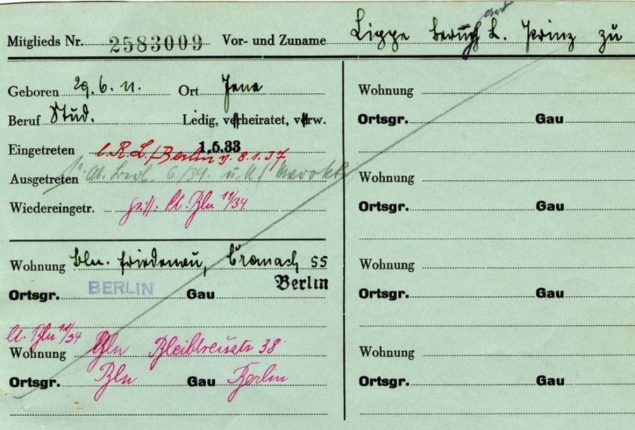 Mitglieds Nr. 2583009 Vor- und Zuname Lippe Bernhard L. Prinz zu
Geboren 29.6.11. Ort Jena
Beruf Stud. Ledig, verheiratet, verw.
Eingetreten 1.5.33
b. R.L./Berlin v. 8.1.37
Ausgetreten 6/34 u.
Wiedereingetr. Lt. Bln 11/34
Wohnung Bln. Friedenau, 55
Ortsgr. BERLIN Gau Berlin
Lt. Bln 11/34
Wohnung Bln Bleibtreustr 38
Ortsgr. Bln Gau Berlin
Wohnung
Ortsgr. Gau
Wohnung
Ortsgr. Gau
Wohnung
Ortsgr. Gau
Wohnung
Ortsgr. Gau